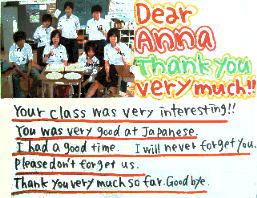 Dear
Anna
Thank you
very much!!
Your class was very interesting!!
You was very good at Japanese.
I had a good time. I will never forget you.
Please don't forget us.
Thank you very much so far. Good bye.